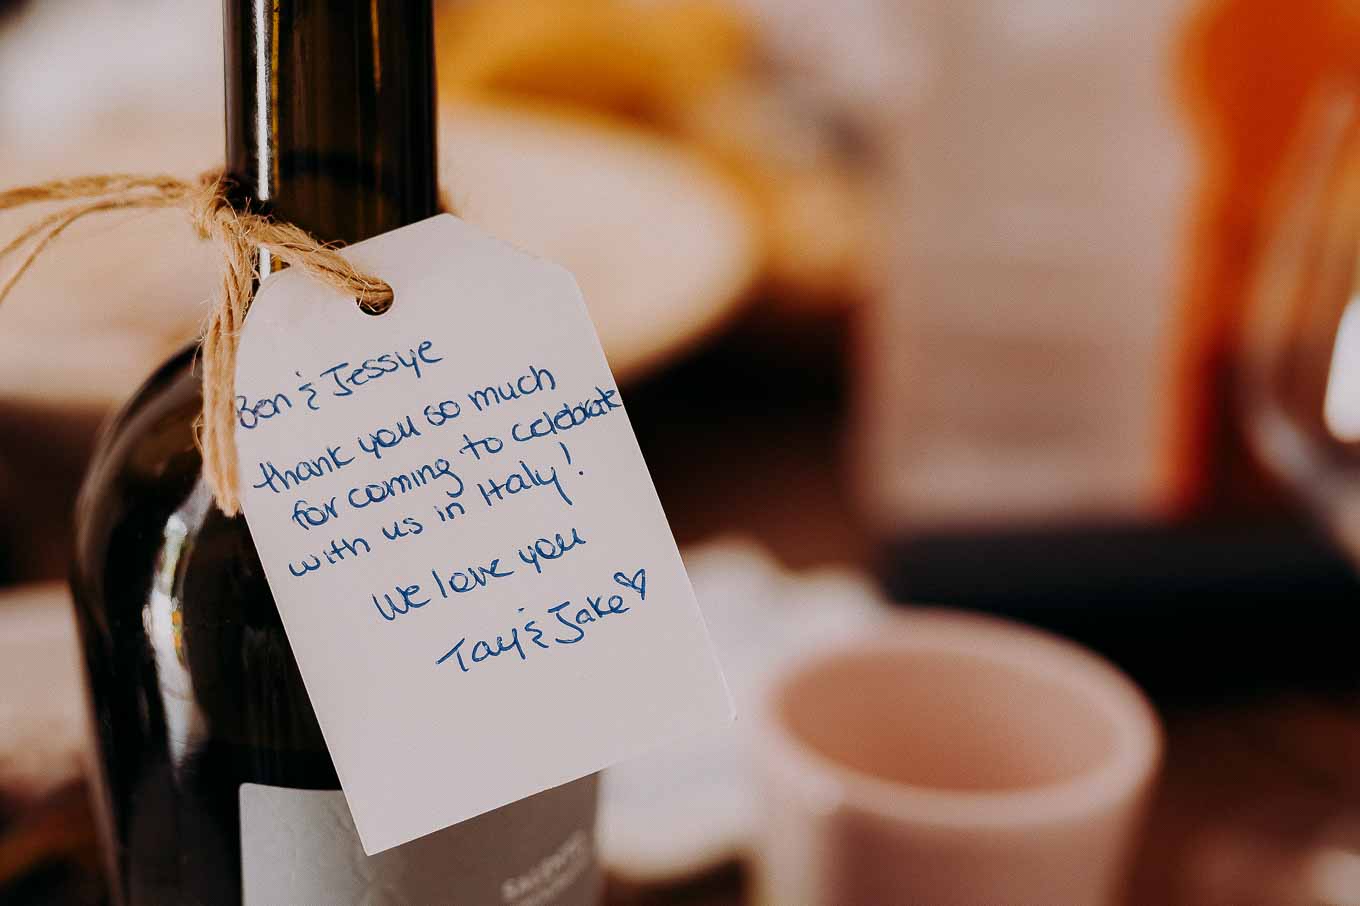 Ben & Jessye
thank you so much
for coming to celebrate
with us in Italy!
We love you
Tay & Jake ♡